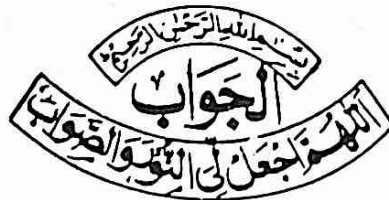 بِسْمِ اللهِ الرَّحْمٰنِ الرَّحِيْمِ
اَلْجَوَابْ
اَللّٰهُمَّ اجْعَلْ لِّیَ النُّوْرَ وَالصَّوَابَ